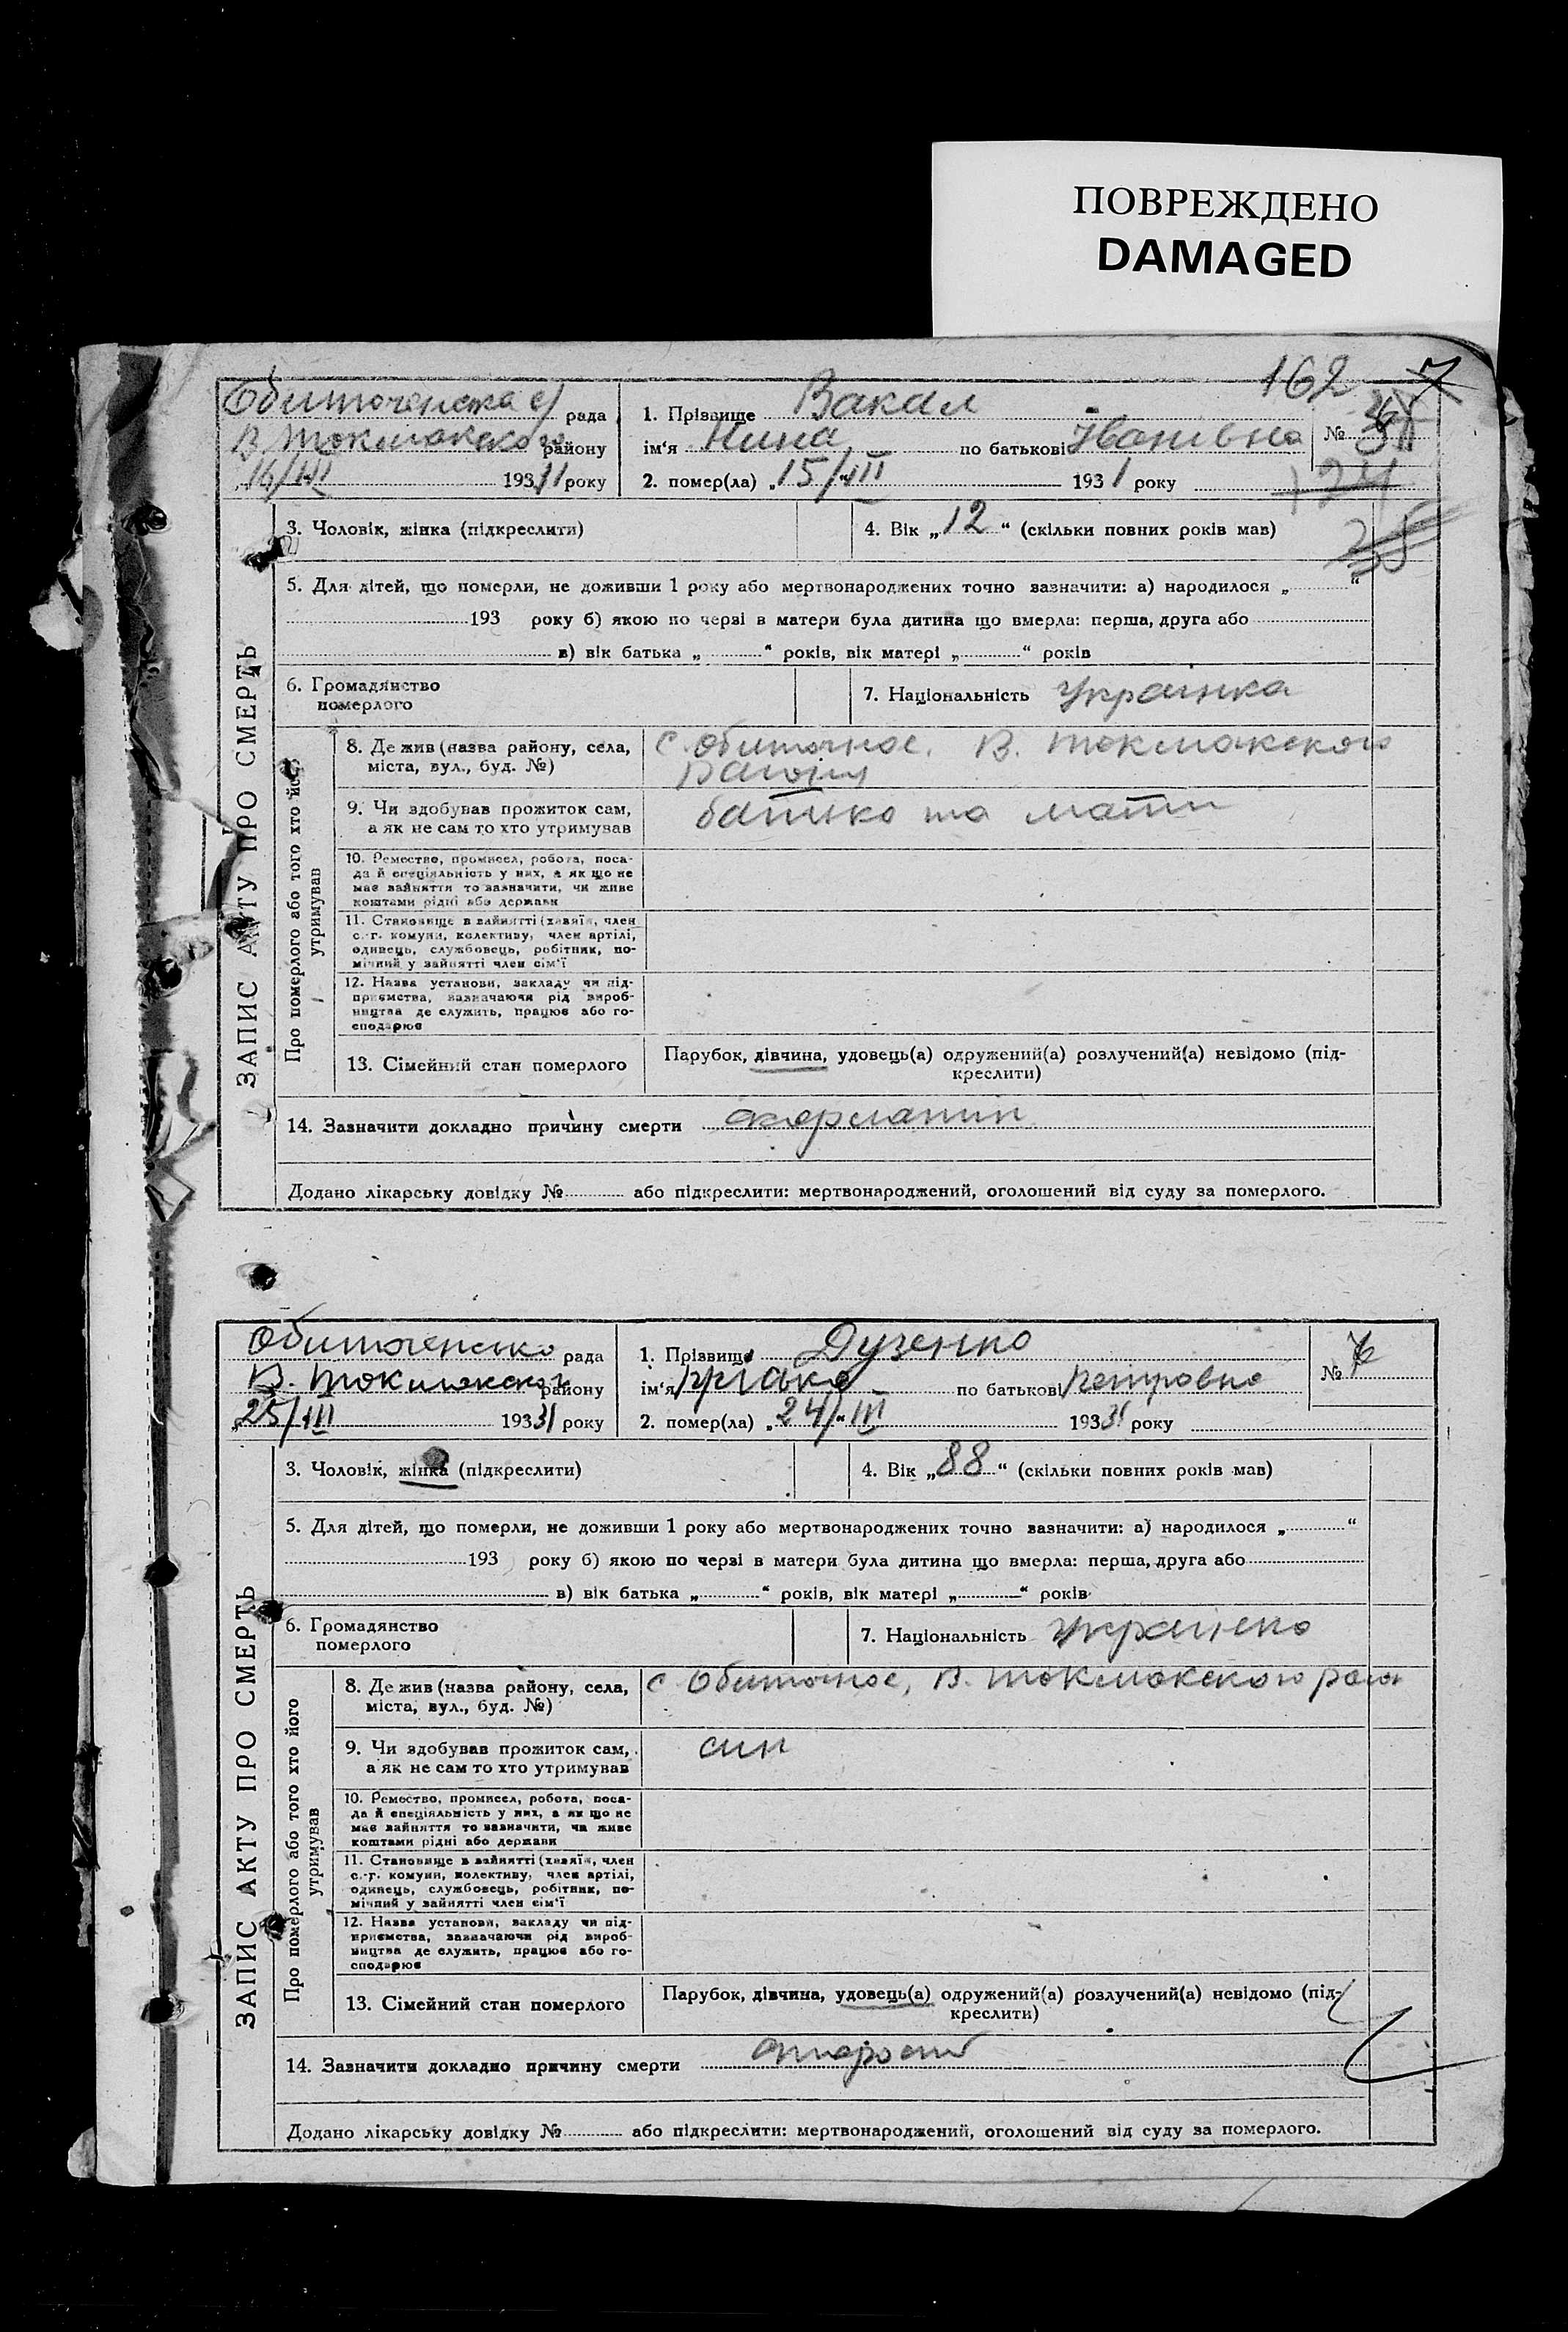 ПОВРЕЖДЕНО
DAMAGED
162
Обиточенска с/ рада
1. Прізвище Вакал
В. Токмакского району
ім'я Нина по батькові Іванівна №
16/III 1931 року
2. помер(ла) „15/III 1931 року
3. Чоловік, жінка (підкреслити)
4. Вік „12“ (скільки повних років мав)
25
5. Для дітей, що померли, не доживши 1 року або мертвонароджених точно зазначити: а) народилося „ “
193 року б) якою по черзі в матери була дитина що вмерла: перша, друга або
в) вік батька „ “ років, вік матері „ “ років
6. Громадянство
померлого
7. Національність Українка
8. Де жив (назва району, села,
міста, вул., буд. №)
с. Обиточное, В. Токмакского
району
9. Чи здобував прожиток сам,
а як не сам то хто утримував
батько та мати
10. Ремество, промисел, робота, поса-
да й спеціяльність у них, а як що не
має зайняття то зазначити, чи живе
коштами рідні або держави
11. Становище в зайнятті (хазяїн, член
с.-г. комуни, колективу, член артілі,
одинець, службовець, робітник, по-
мічний у зайнятті член сім'ї
12. Назва установи, закладу чи під-
приємства, зазначаючи рід вироб-
ництва де служить, працює або го-
сподарює
13. Сімейний стан померлого
Парубок, дівчина, удовець(а) одружений(а) розлучений(а) невідомо (під-
креслити)
14. Зазначити докладно причину смерти скарлатин
Додано лікарську довідку № або підкреслити: мертвонароджений, оголошений від суду за померлого.
ЗАПИС АКТУ ПРО СМЕРТЬ
Про померлого або того хто його
утримував
Обиточенсько рада
1. Прізвище Дузенко
В. Токмакског району
ім'я Прісько по батькові Петровно №
25/III 19331 року
2. помер(ла) „24/III 19331 року
3. Чоловік, жінка (підкреслити)
4. Вік „88“ (скільки повних років мав)
5. Для дітей, що померли, не доживши 1 року або мертвонароджених точно зазначити: а) народилося „ “
193 року б) якою по черзі в матери була дитина що вмерла: перша, друга або
в) вік батька „ “ років, вік матері „ “ років
6. Громадянство
померлого
7. Національність
8. Де жив (назва району, села,
міста, вул., буд. №)
с Обиточное, В. Токмакского район
9. Чи здобував прожиток сам,
а як не сам то хто утримував
син
10. Ремество, промисел, робота, поса-
да й спеціяльність у них, а як що не
має зайняття то зазначити, чи живе
коштами рідні або держави
11. Становище в зайнятті (хазяїн, член
с.-г. комуни, колективу, член артілі,
одинець, службовець, робітник, по-
мічний у зайнятті член сім'ї
12. Назва установи, закладу чи під-
приємства, зазначаючи рід вироб-
ництва де служить, працює або го-
сподарює
13. Сімейний стан померлого
Парубок, дівчина, удовець(а) одружений(а) розлучений(а) невідомо (під-
креслити)
14. Зазначити докладно причину смерти старость
Додано лікарську довідку № або підкреслити: мертвонароджений, оголошений від суду за померлого.
ЗАПИС АКТУ ПРО СМЕРТЬ
Про померлого або того хто його
утримував